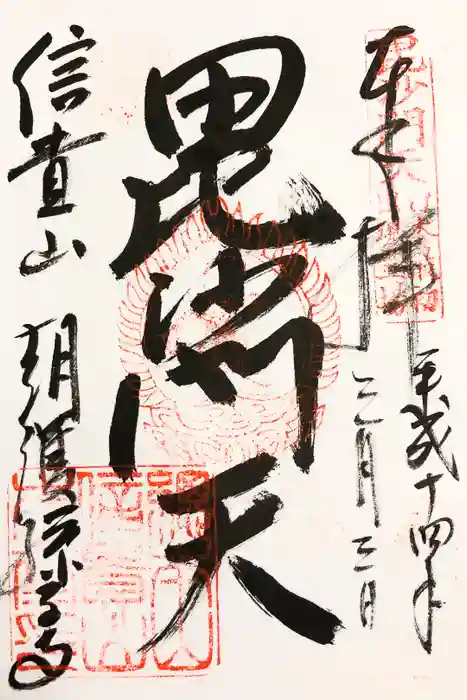 奉拝
平成十四年
三月三日
毘沙門天
信貴山
朝護孫子寺